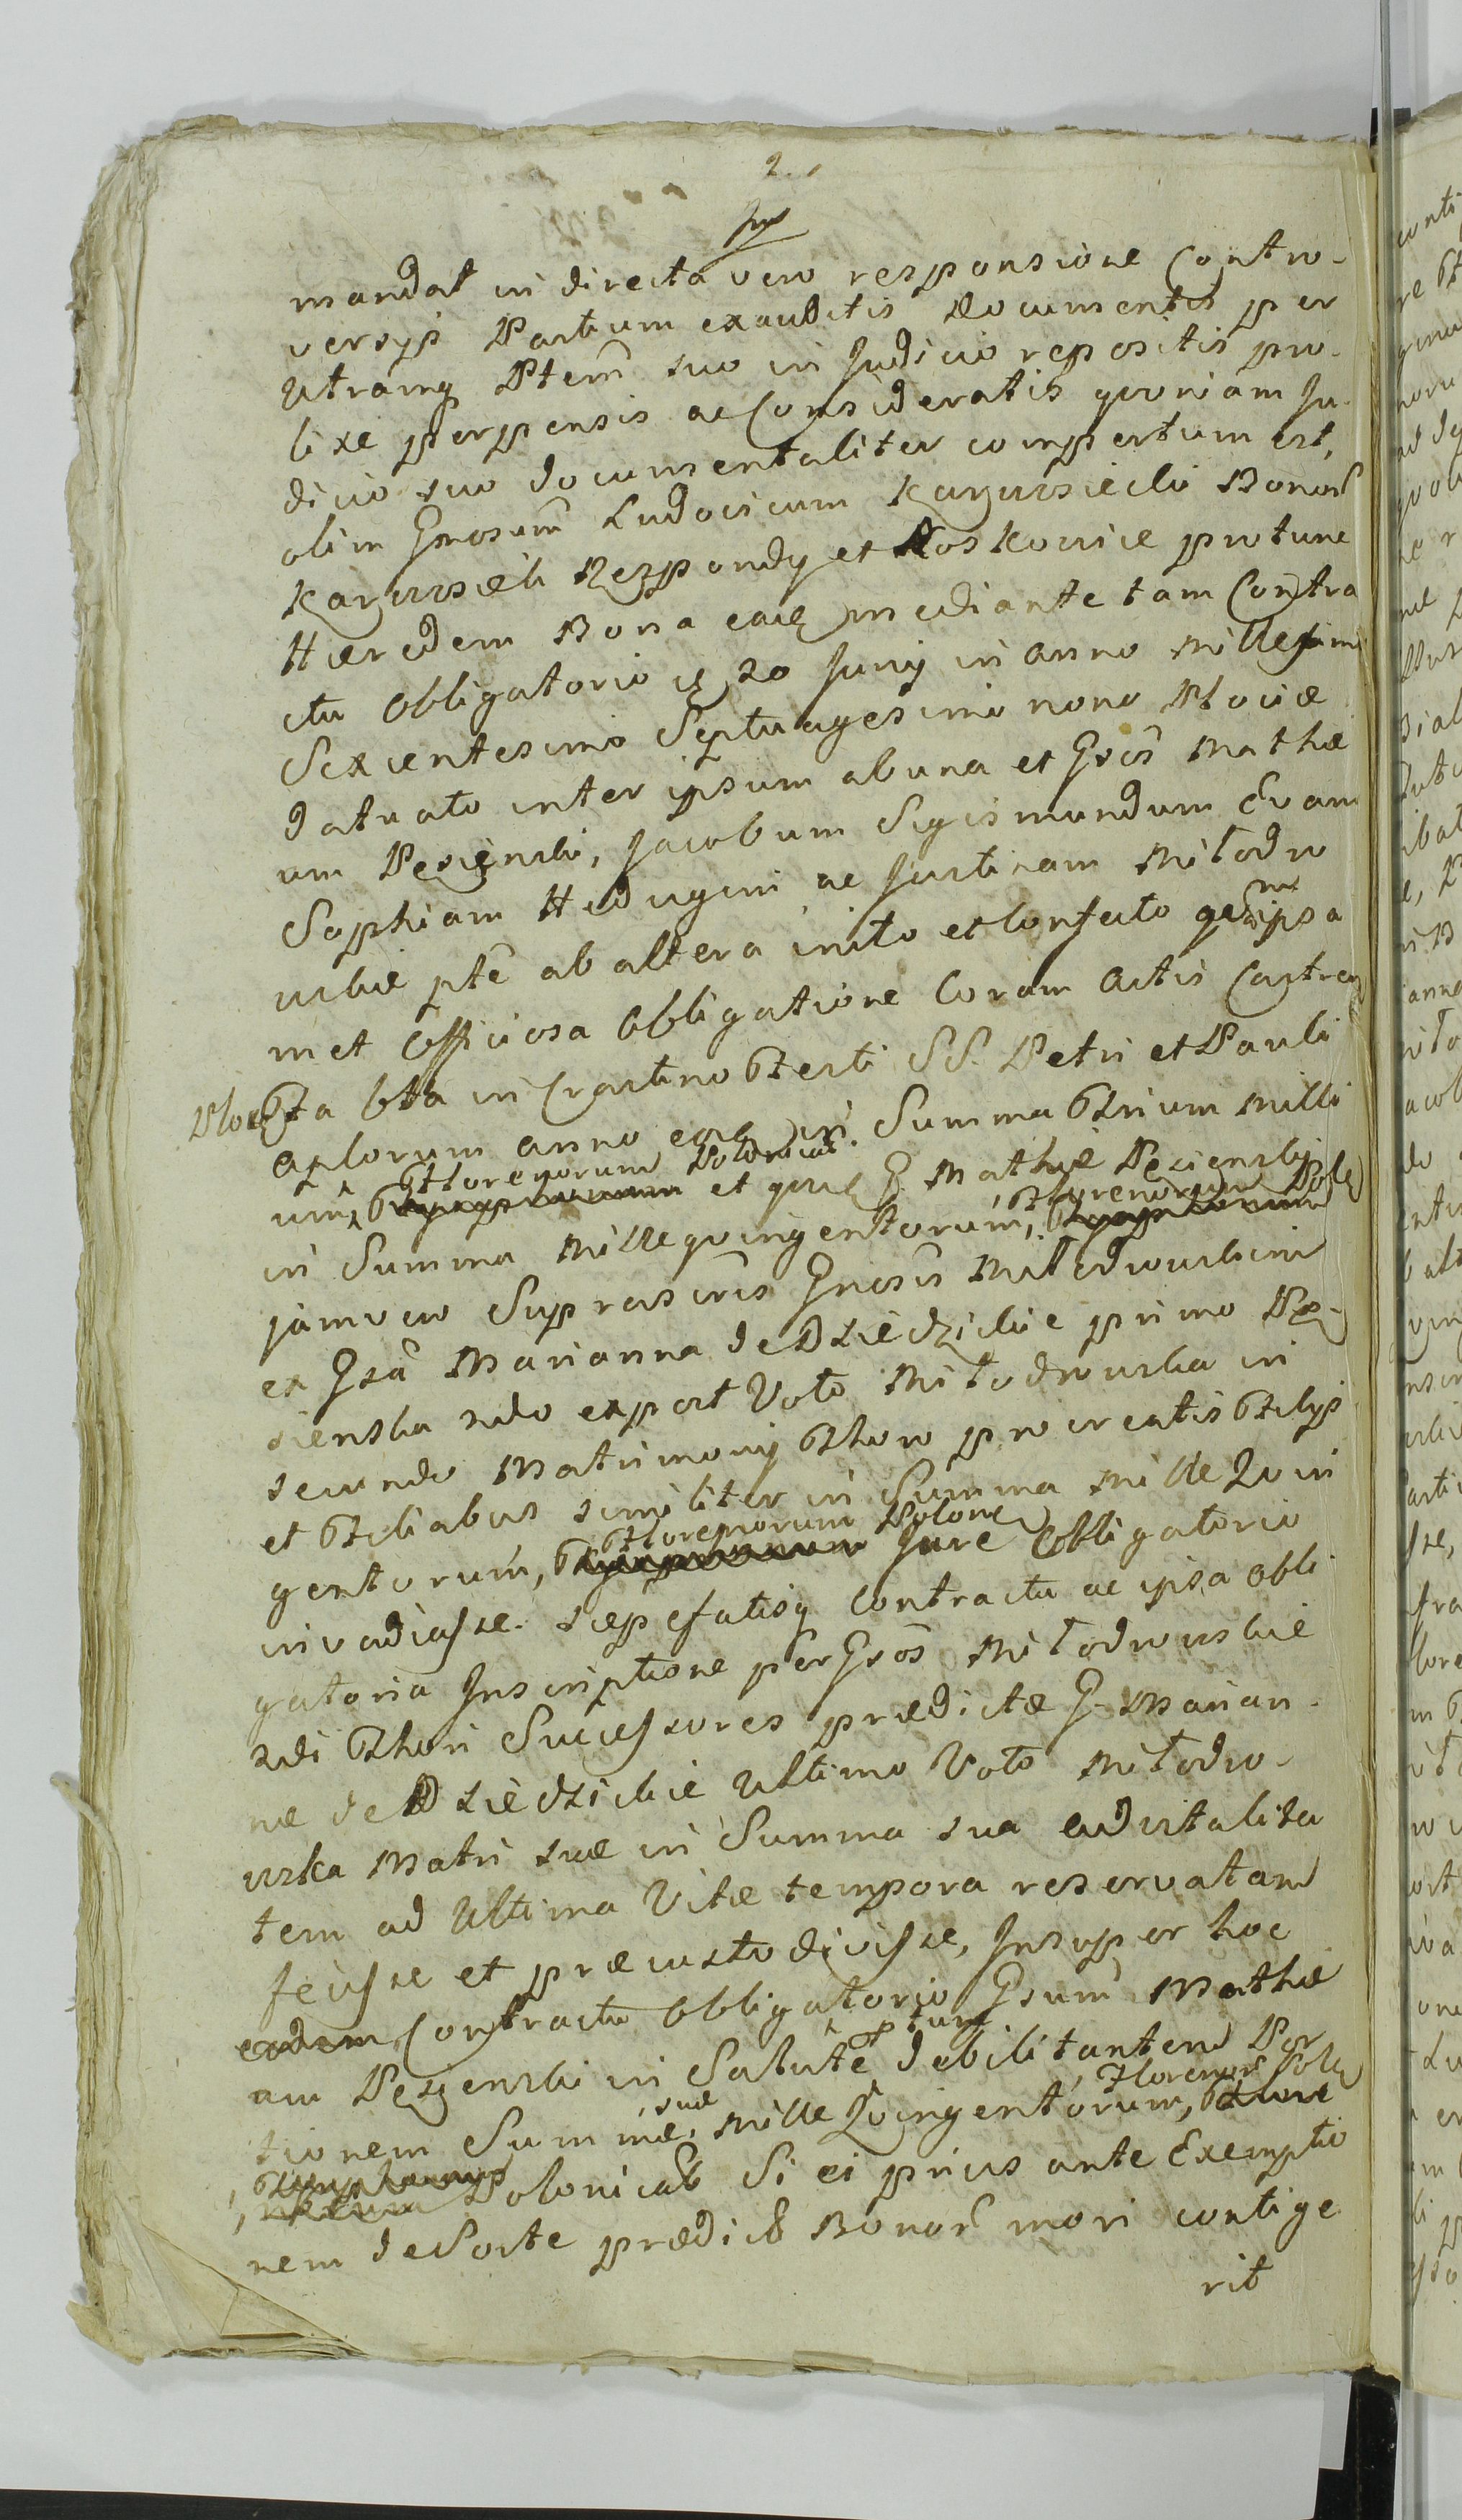 2.
mandat in directa vero responsione Contro-
versys Partium exauditis Documentis per
Utramq Ptem suo in Judicio repositis pro-
lixe perpensis ac Consideratis quoniam Ju-
dicio suo documentaliter compertum est,
olim Gnosum Ludovicum Karwosiecki Bonor
Karwosieki Rezpondy et Noskowice protunc
Hæredem Bona eadem mediante tam Contra
ctu Obligatorio 20 Juny in anno Millesimo
Sexcentesimo Septuagesimo nono Plociæ
datuato inter ipsum ab una et Gsos Mathi
am Pesienski, Jacobum Sigismundum Evam
Sophiam Hedvigim ac Justinam Mlodzi
wskie pte ab altera inito et confecto qam ipsa
met Officiosa Obligatione Coram Actis Castren
Plocen Fa Obta in Crastino Festi SS. Petri et Pauli
aplorum anno eodem in Summa Trium milli
um, Florenorum Polonical et quidem G. Mathiæ Pesienski
in Summa Mille quingentorum, Florenorum Pole
jam vero Suprascris Gnosis Mlodzowskim
ex Gsa Marianna de Dziedzickie primo Pe-
sienska sedo expost Voto Mlodzowska in
secundo Matrimony Thoro procreatis Filys
et Filiabus similiter in Summa Mille Quin
gentorum, Florenorum Polone Jure Obligatorio
invadiasse. sæpefatisq Contractu ac ipsa obli
gatoria Inscriptione per Gsos Mlodzowskie
sedi Thori Successores prædictæ G. Marian-
næ de Dziedzickie Ultimo Voto Mlodzo-
wska Matri suæ in Summa sua advitalita
tem ad Ultima Vitæ tempora reservatam
fecisse et præcustodivisse, Insuper hoc
eodem Contractu Obligatorio Gsum Mathi
am Pesienski in Salute debilitantem Por
tionem Summæ suæ Mille Quingentorum, Florenor Pole
Polonical Si ei prius ante Exemptio
nem de Sorte prædict Bonor mori contige
rit